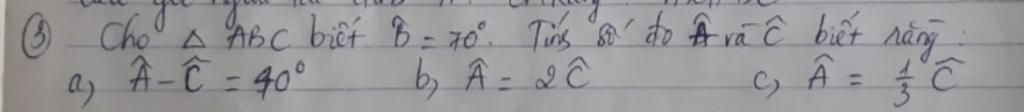 ③ Cho △ ABC biết B̂ = 70°. Tính số đo Â và Ĉ biết rằng:
a, Â - Ĉ = 40° b, Â = 2Ĉ c, Â = 1/3 Ĉ